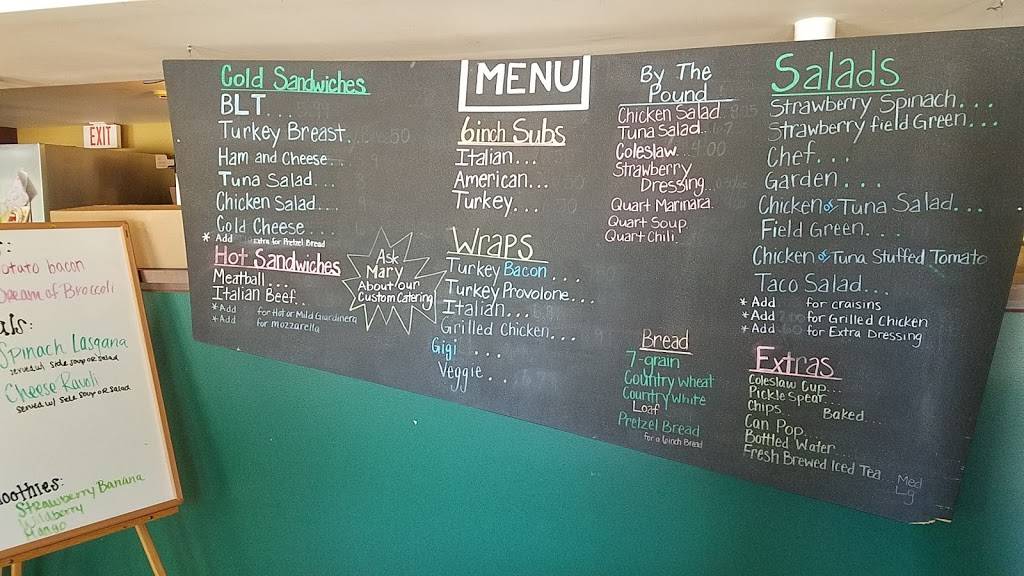 EXIT
Cold Sandwiches
BLT...
Turkey Breast...
Ham and Cheese...
Tuna Salad...
Chicken Salad...
Cold Cheese...
* Add extra for Pretzel Bread
Hot Sandwiches
Meatball...
Italian Beef...
*Add for Hot or Mild Giardinera
*Add for mozzarella
Ask
Mary
About our
Custom Catering
MENU
6inch Subs
Italian...
American...
Turkey...
Wraps
Turkey Bacon....
Turkey Provolone...
Italian...
Grilled Chicken...
Gigi....
Veggie...
By The
Pound
Chicken Salad
Tuna Salad
Coleslaw
Strawberry
Dressing
Quart Marinara
Quart Soup
Quart Chili
Bread
7-grain
Country Wheat
Country White
Loaf
Pretzel Bread
for a 6inch Bread
Salads
Strawberry Spinach...
Strawberry field Green...
Chef...
Garden...
Chicken or Tuna Salad...
Field Green...
Chicken or Tuna Stuffed Tomato
Taco Salad...
* Add for craisins
* Add for Grilled Chicken
* Add for Extra Dressing
Extras
Coleslaw Cup...
Pickle Spear...
Chips... Baked...
Can Pop...
Bottled Water...
Fresh Brewed Iced Tea Med
Lg
otato bacon
ream of Broccoli
als:
Spinach Lasgana
served w/ side soup or salad
Cheese Ravoli
served w/ side soup or salad
moothies:
Strawberry Banana
Wildberry
Mango